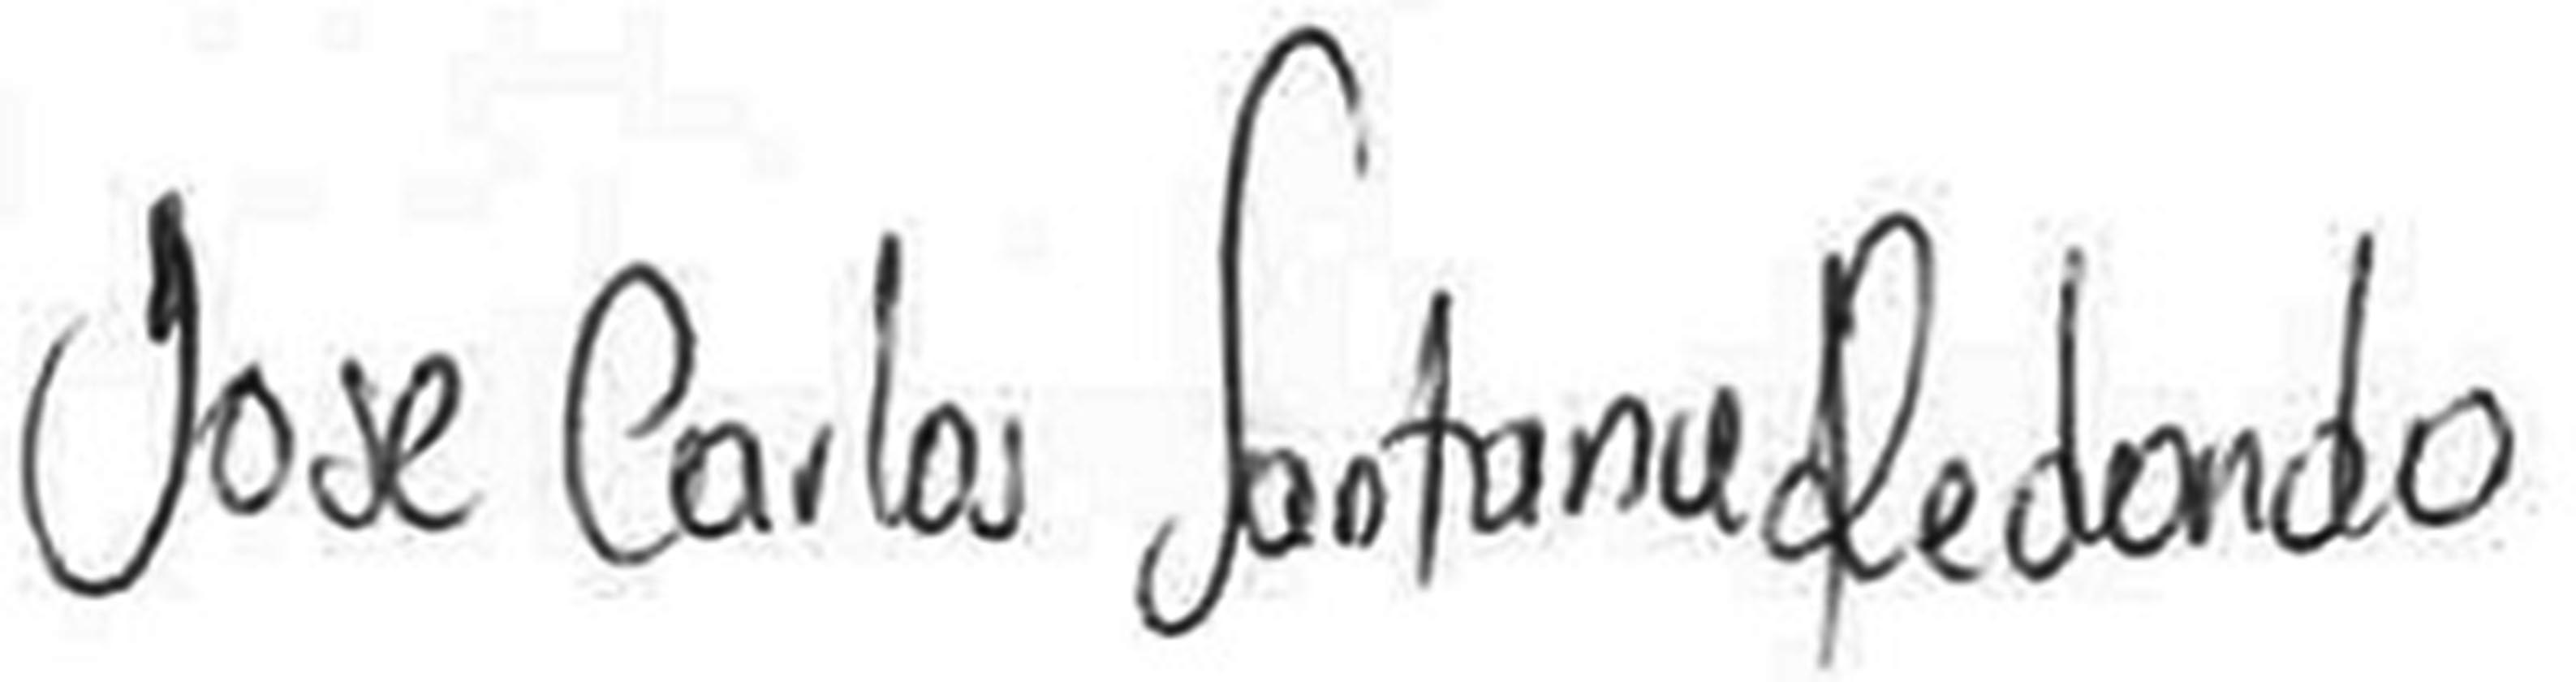 Jose Carlos Santana Redondo